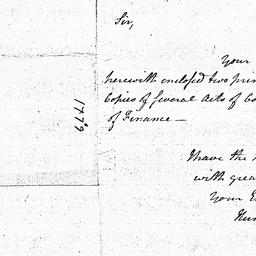 Sir,
Your
herewith enclosed two prin
Copies of several Acts of Co
of Finance —
I have the
with grea
Your E
Hum
1779